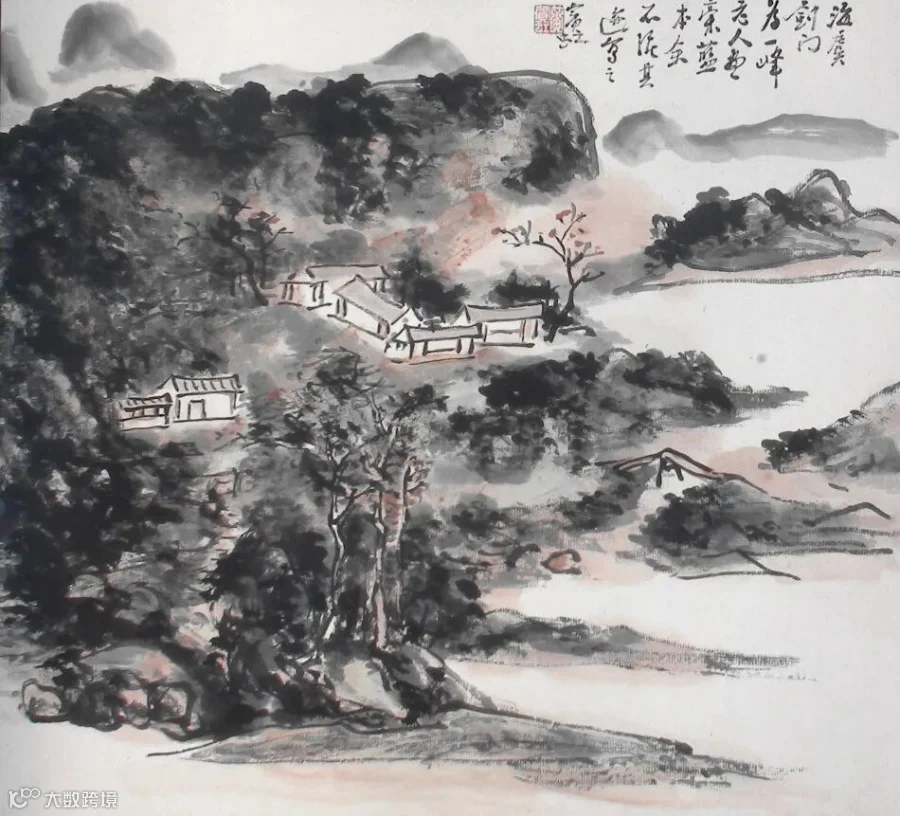 海虞
劍門
為一峰
老人畫
稾藍
本余
不泥其
迹寫之
賓虹
大数跨境